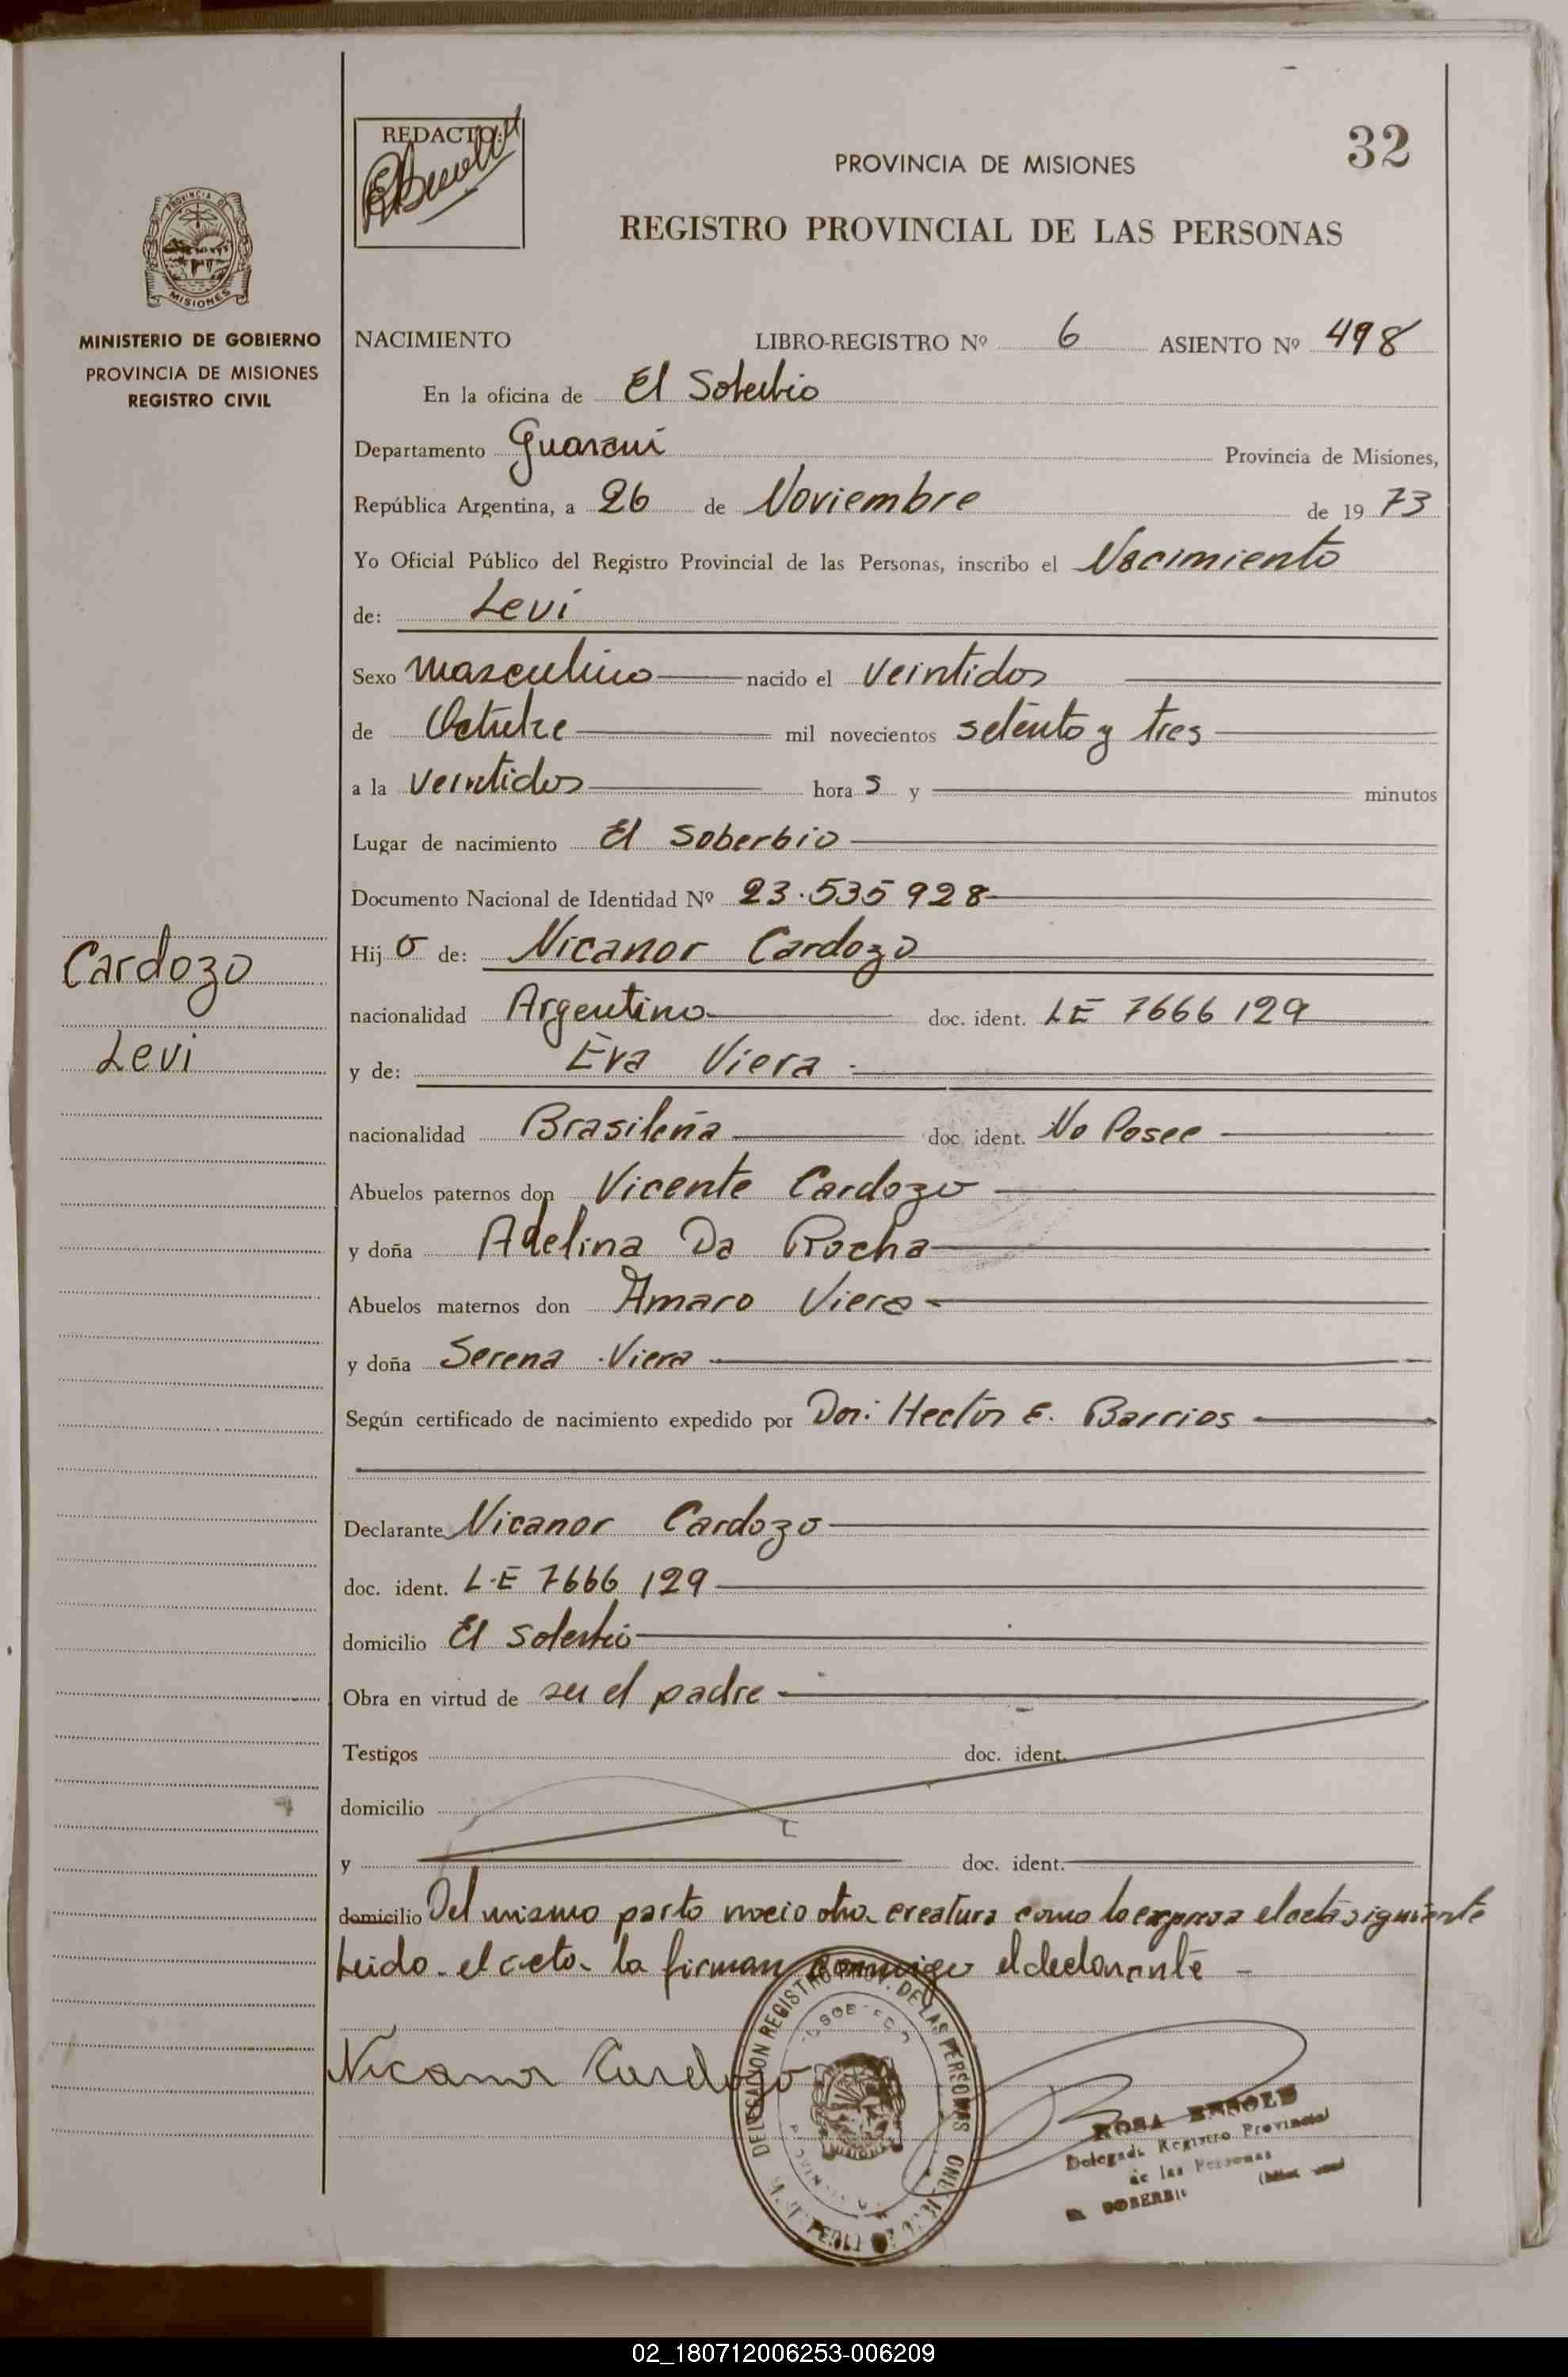 32
REDACTO:
PROVINCIA DE MISIONES
REGISTRO PROVINCIAL DE LAS PERSONAS
PROVINCIA DE
MISIONES
MINISTERIO DE GOBIERNO
PROVINCIA DE MISIONES
REGISTRO CIVIL
NACIMIENTO LIBRO-REGISTRO Nº 6 ASIENTO Nº 498
En la oficina de El Soberbio
Departamento Guarani Provincia de Misiones,
República Argentina, a 26 de Noviembre de 1973
Yo Oficial Público del Registro Provincial de las Personas, inscribo el Nacimiento
de: Levi
Sexo masculino nacido el veintidos
de Octubre mil novecientos setenta y tres
a la veintidos hora s y minutos
Lugar de nacimiento El Soberbio
Documento Nacional de Identidad Nº 23.535928
Cardozo
Levi
Hijo de: Nicanor Cardozo
nacionalidad Argentino doc. ident. LE 7666129
y de: Eva Viera
nacionalidad Brasileña doc. ident. No Posee
Abuelos paternos don Vicente Cardozo
y doña Adelina Da Rocha
Abuelos maternos don Amaro Viera
y doña Serena Viera
Según certificado de nacimiento expedido por Don: Hector E. Barrios
Declarante Nicanor Cardozo
doc. ident. L.E 7666129
domicilio El Soberbio
Obra en virtud de ser el padre
Testigos doc. ident.
domicilio
y doc. ident.
domicilio Del mismo parto nacio otra creatura como lo expresa el acta siguiente
Leido el acta la firman conmigo el declarante
Nicanor Cardozo
DELEGACION REGISTRO PROV. DE LAS PERSONAS
MISIONES
ROSA
Delegada Registro Provincial
de las Personas
EL SOBERBIO
02_180712006253-006209